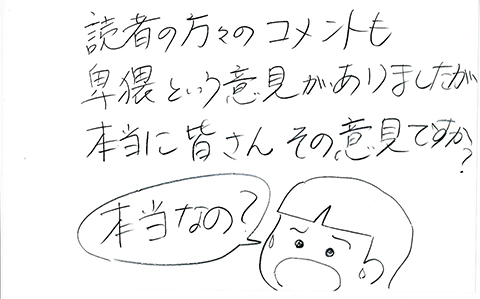 読者の方々のコメントも
卑猥という意見がありましたが
本当に皆さんその意見ですか?
本当なの?